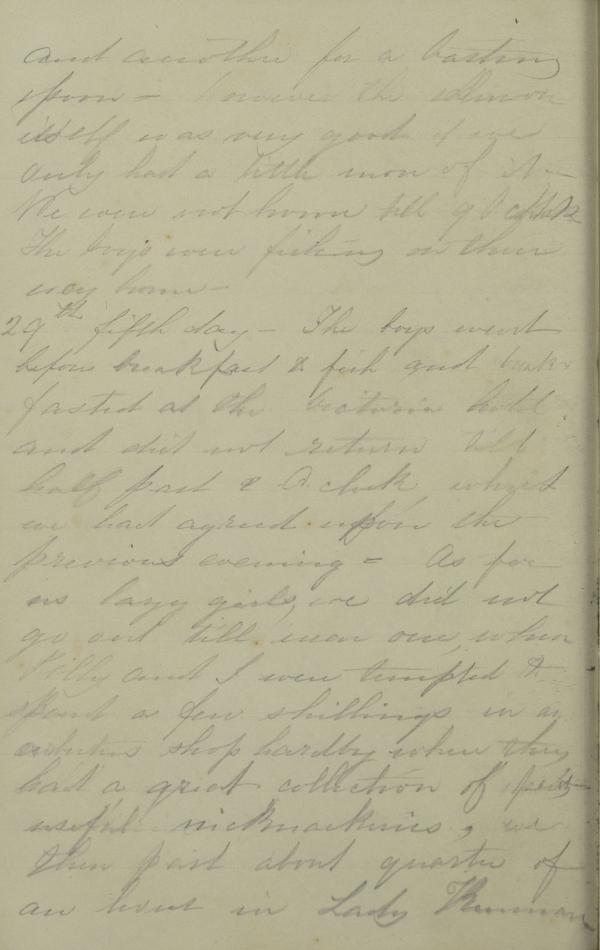 and another for a basting
spoon - however the salmon
itself was very good if we
only had a little more of it -
We were not home till 9 O Clock
The boys were fishing on their
way home -
29th fifth day - The boys went
before breakfast to fish and break-
fasted at the Victoria hotel
and did not return till
half past O clock, which
we had agreed upon the
previous evening = As for
us lazy girls, we did not
go out till near one, when
and I were tempted to
spend a few shillings in an
arbutus shop hardby where they
had a great collection of pretty
useful nicknackeries, we
then past about quarter of
an hour in Lady